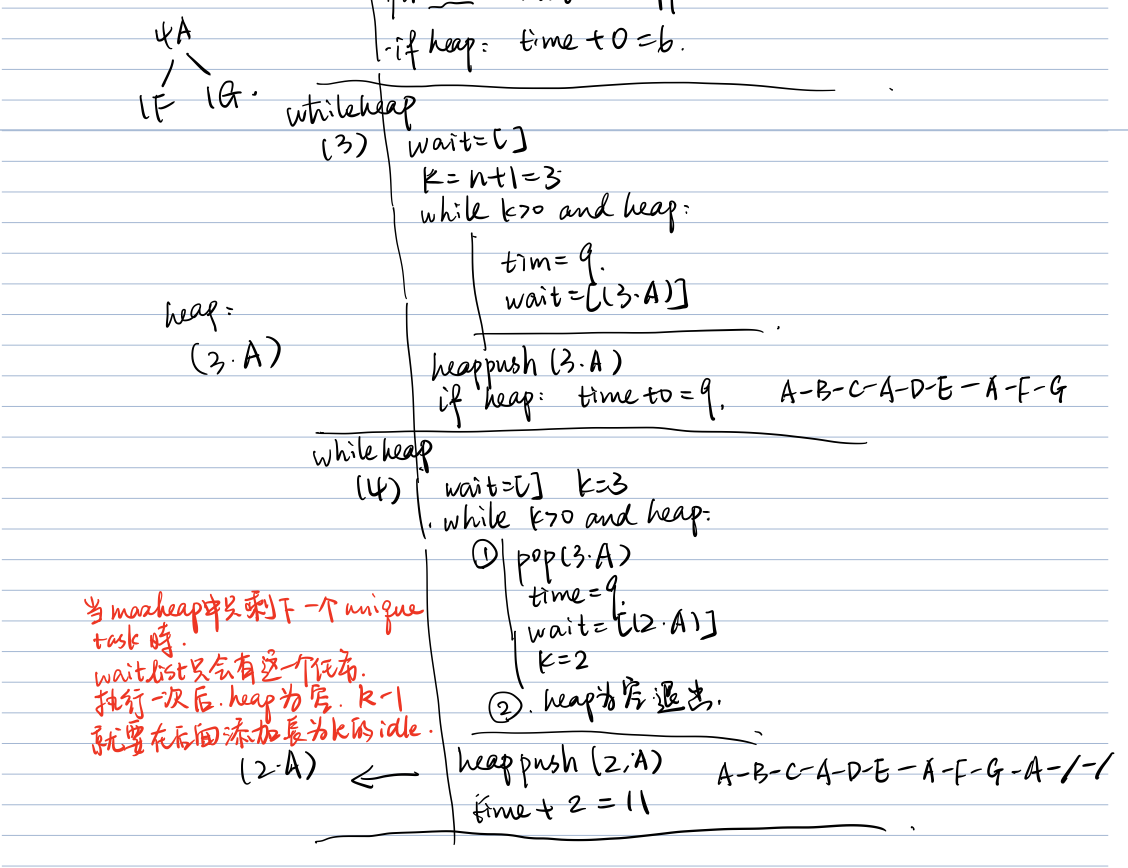 4A
1F 1G.
if heap: time + 0 = 6.
while heap
(3)
wait=[]
k=n+1=3
while k>0 and heap:
tim=9.
wait=[(3.A)]
heap:
(3.A)
heappush (3.A)
if heap: time+0=9.
A-B-C-A-D-E-A-F-G
while heap
(4)
wait=[] k=3
while k>0 and heap:
① pop(3.A)
time=9.
wait=[(2.A)]
k=2
② . heap为空退出.
当maxheap中只剩下一个unique
task时.
waitlist只会有这一个任务.
执行一次后.heap为空. k-1
就要在后面添加长为k的idle.
(2.A) ← heappush (2,A)
time + 2 = 11
A-B-C-A-D-E-A-F-G-A-/-/